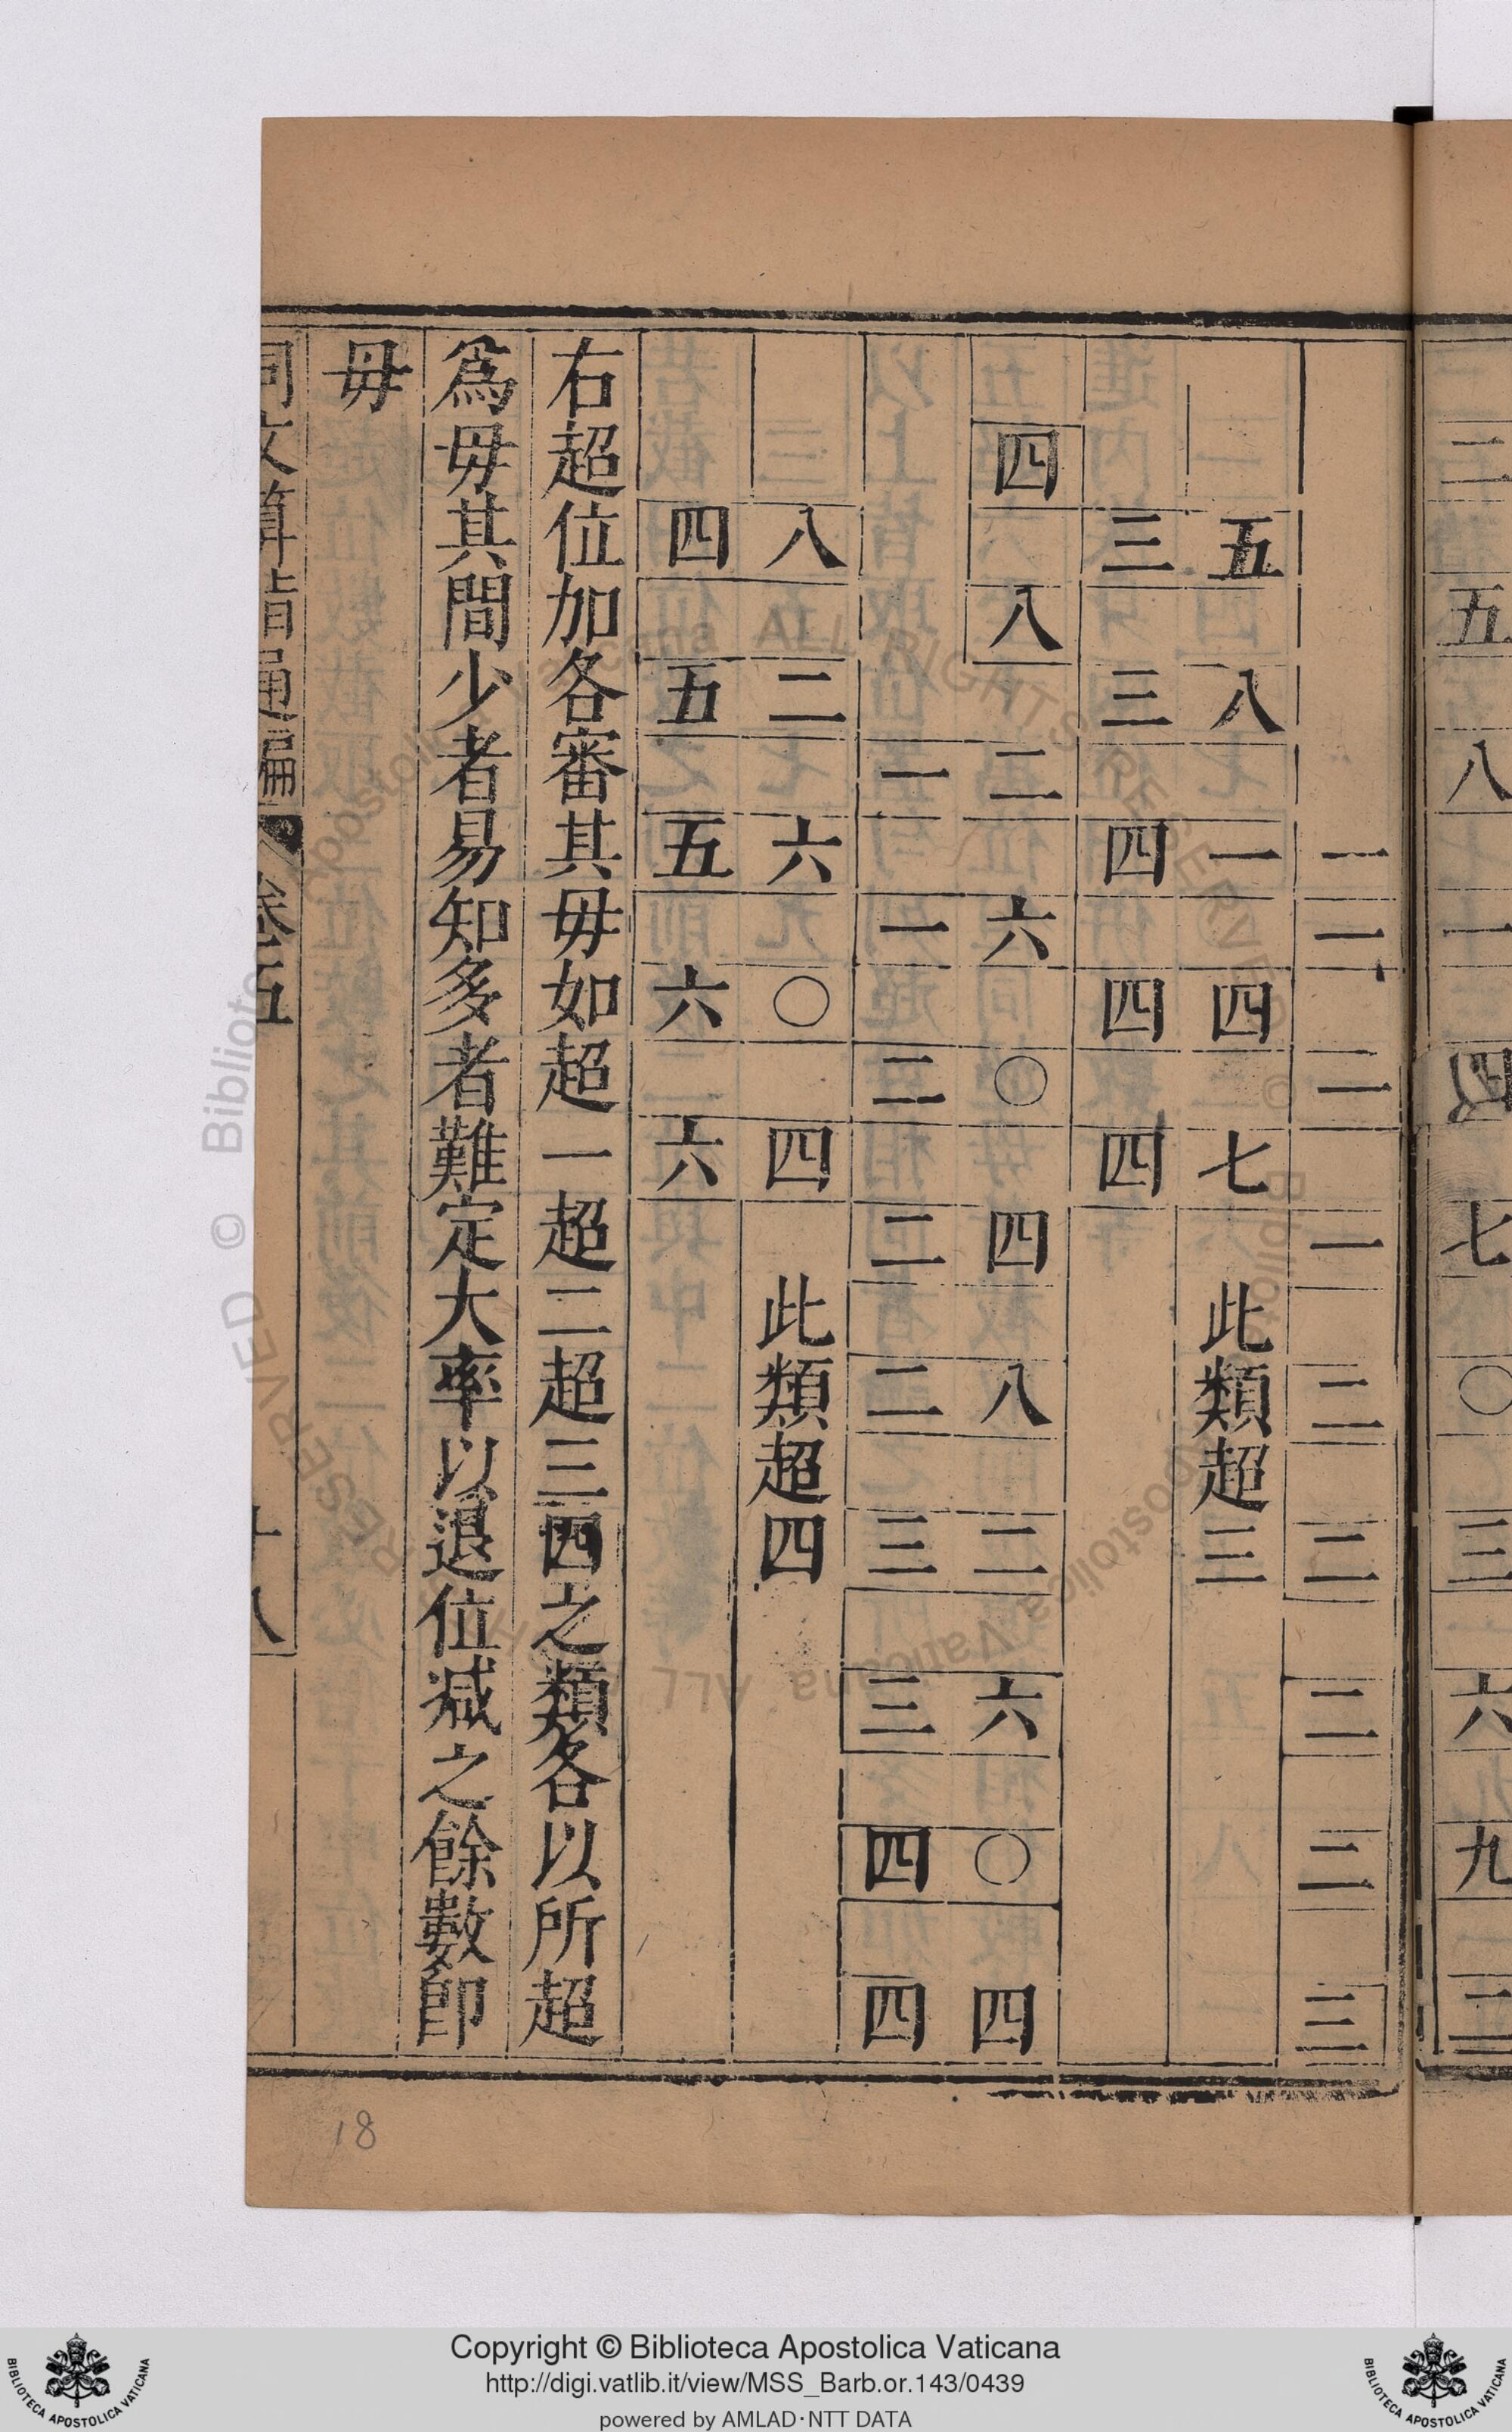 二五八一四七〇三六九二
一一一二二二二三
五八一四七此類超三
三三四四四
四八二六〇四八二六〇四
一一二二二三三四四
八二六〇四此類超四
四五五六六
右超位加各審其毋如超一超二超三四之類各以所超
爲毋其間少者易知多者難定大率以退位減之餘數卽
毋
同文算指通編 卷五 十八
18
Copyright © Biblioteca Apostolica Vaticana
http://digi.vatlib.it/view/MSS_Barb.or.143/0439
powered by AMLAD·NTT DATA
BIBLIOTECA APOSTOLICA VATICANA
BIBLIOTECA APOSTOLICA VATICANA